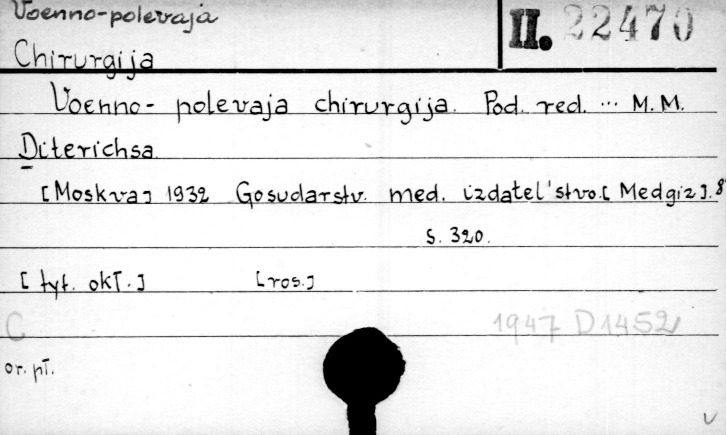 Voenno-polevaja
Chirurgija
II. 22470
Voenno- polevaja chirurgija. Pod. red. ... M.M.
Diterichsa.
[Moskva] 1932 Gosudarstv. med. izdatel'stvo.[Medgiz]. 8°
S. 320.
[tyt. okł.] [ros.]
C 1947 D 1452
or. pł.
v